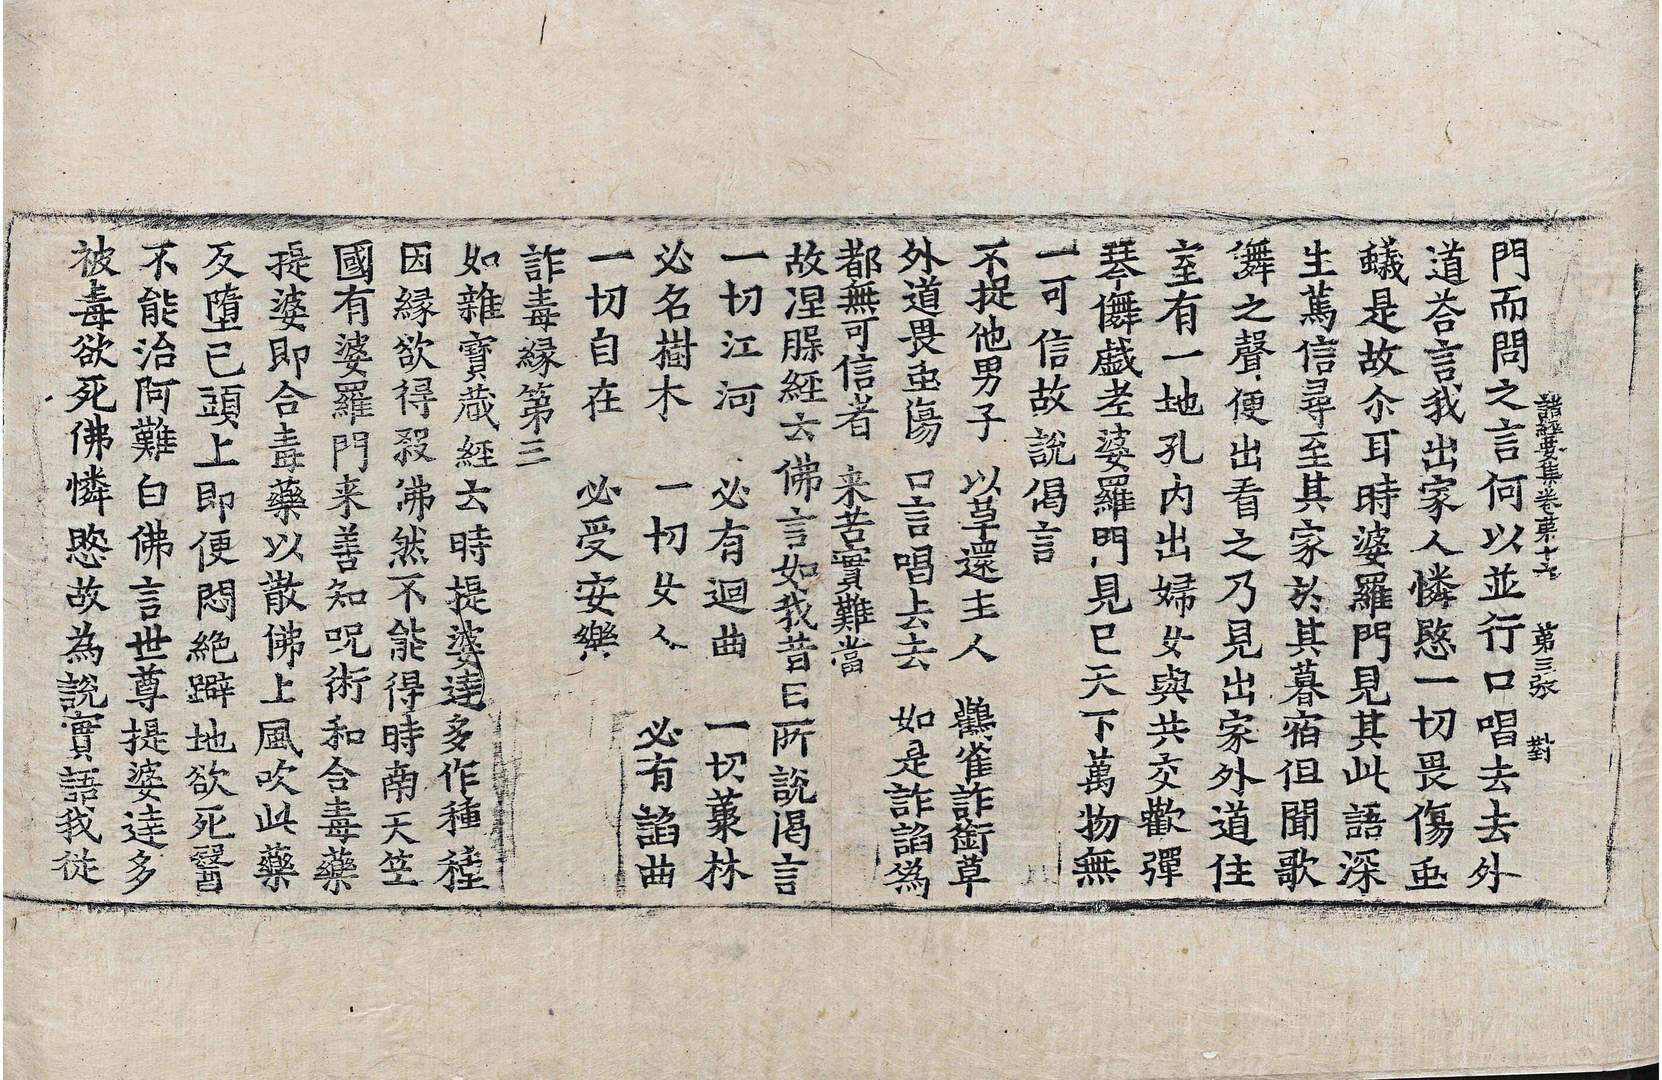 諸經要集卷第十六 第三張 對
門而問之言何以並行口唱去去外
道荅言我出家人憐愍一切畏傷虫
蟻是故尒耳時婆羅門見其此語深
生篤信尋至其家於其暮宿但聞歌
儛之聲便出看之乃見出家外道住
室有一地孔内出婦女與共交歡彈
琴儛戲老婆羅門見已天下萬物無
一可信故說偈言
不捉他男子 以草還主人 鸛雀詐銜草
外道畏虫傷 口言唱去去 如是詐諂爲
都無可信者 来苦實難當
故涅脲經云佛言如我昔日所說渴言
一切江河 必有迴曲 一切菓林
必名樹木 一切女人 必有諂曲
一切自在 必受安樂
詐毒縁第三
如雜寶蔵經云時提婆達多作種種
因縁欲得殺佛然不能得時南天笠
國有婆羅門来善知呪術和合毒藥
提婆即合毒藥以散佛上風吹此藥
反墮已頭上即便悶絶躃地欲死醫
不能治阿難白佛言世尊提婆達多
被毒欲死佛憐愍故為說實語我從